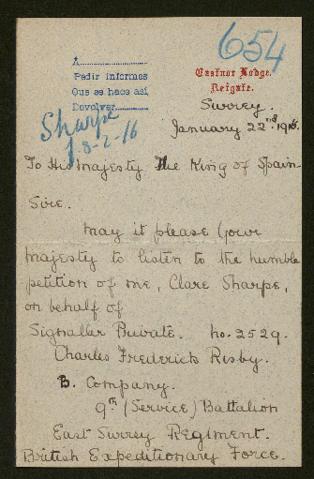 654
A
Pedir informes
Que se hace así
Devolver
Sharpe
3-2-16
Eastnor Lodge,
Reigate.
Surrey.
January 22nd 1916.
To His Majesty The King of Spain-
Sire.
May it please Your
Majesty to listen to the humble
petition of me, Clare Sharpe,
on behalf of
Signaller Private. No. 2529.
Charles Frederick Risby.
B. Company.
9th (Service) Battalion
East Surrey Regiment.
British Expeditionary Force.